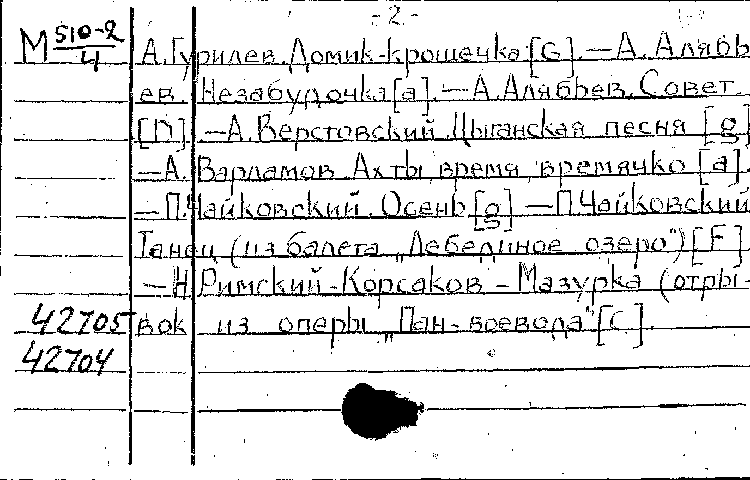 - 2 -
М 510-2/4 А. Гурилев. Домик-крошечка [G]. — А. Алябь
ев. Незабудочка [a]. — А. Алябьев. Совет
[D]. — А. Верстовский. Цыганская песня [g]
— А. Варламов. Ах ты, время, времячко [a].
— П. Чайковский. Осень [g] — П. Чайковский
Танец (из балета „Лебединое озеро") [F]
— Н. Римский-Корсаков - Мазурка (отры-
42705 вок из оперы „Пан-воевода" [C].
42704